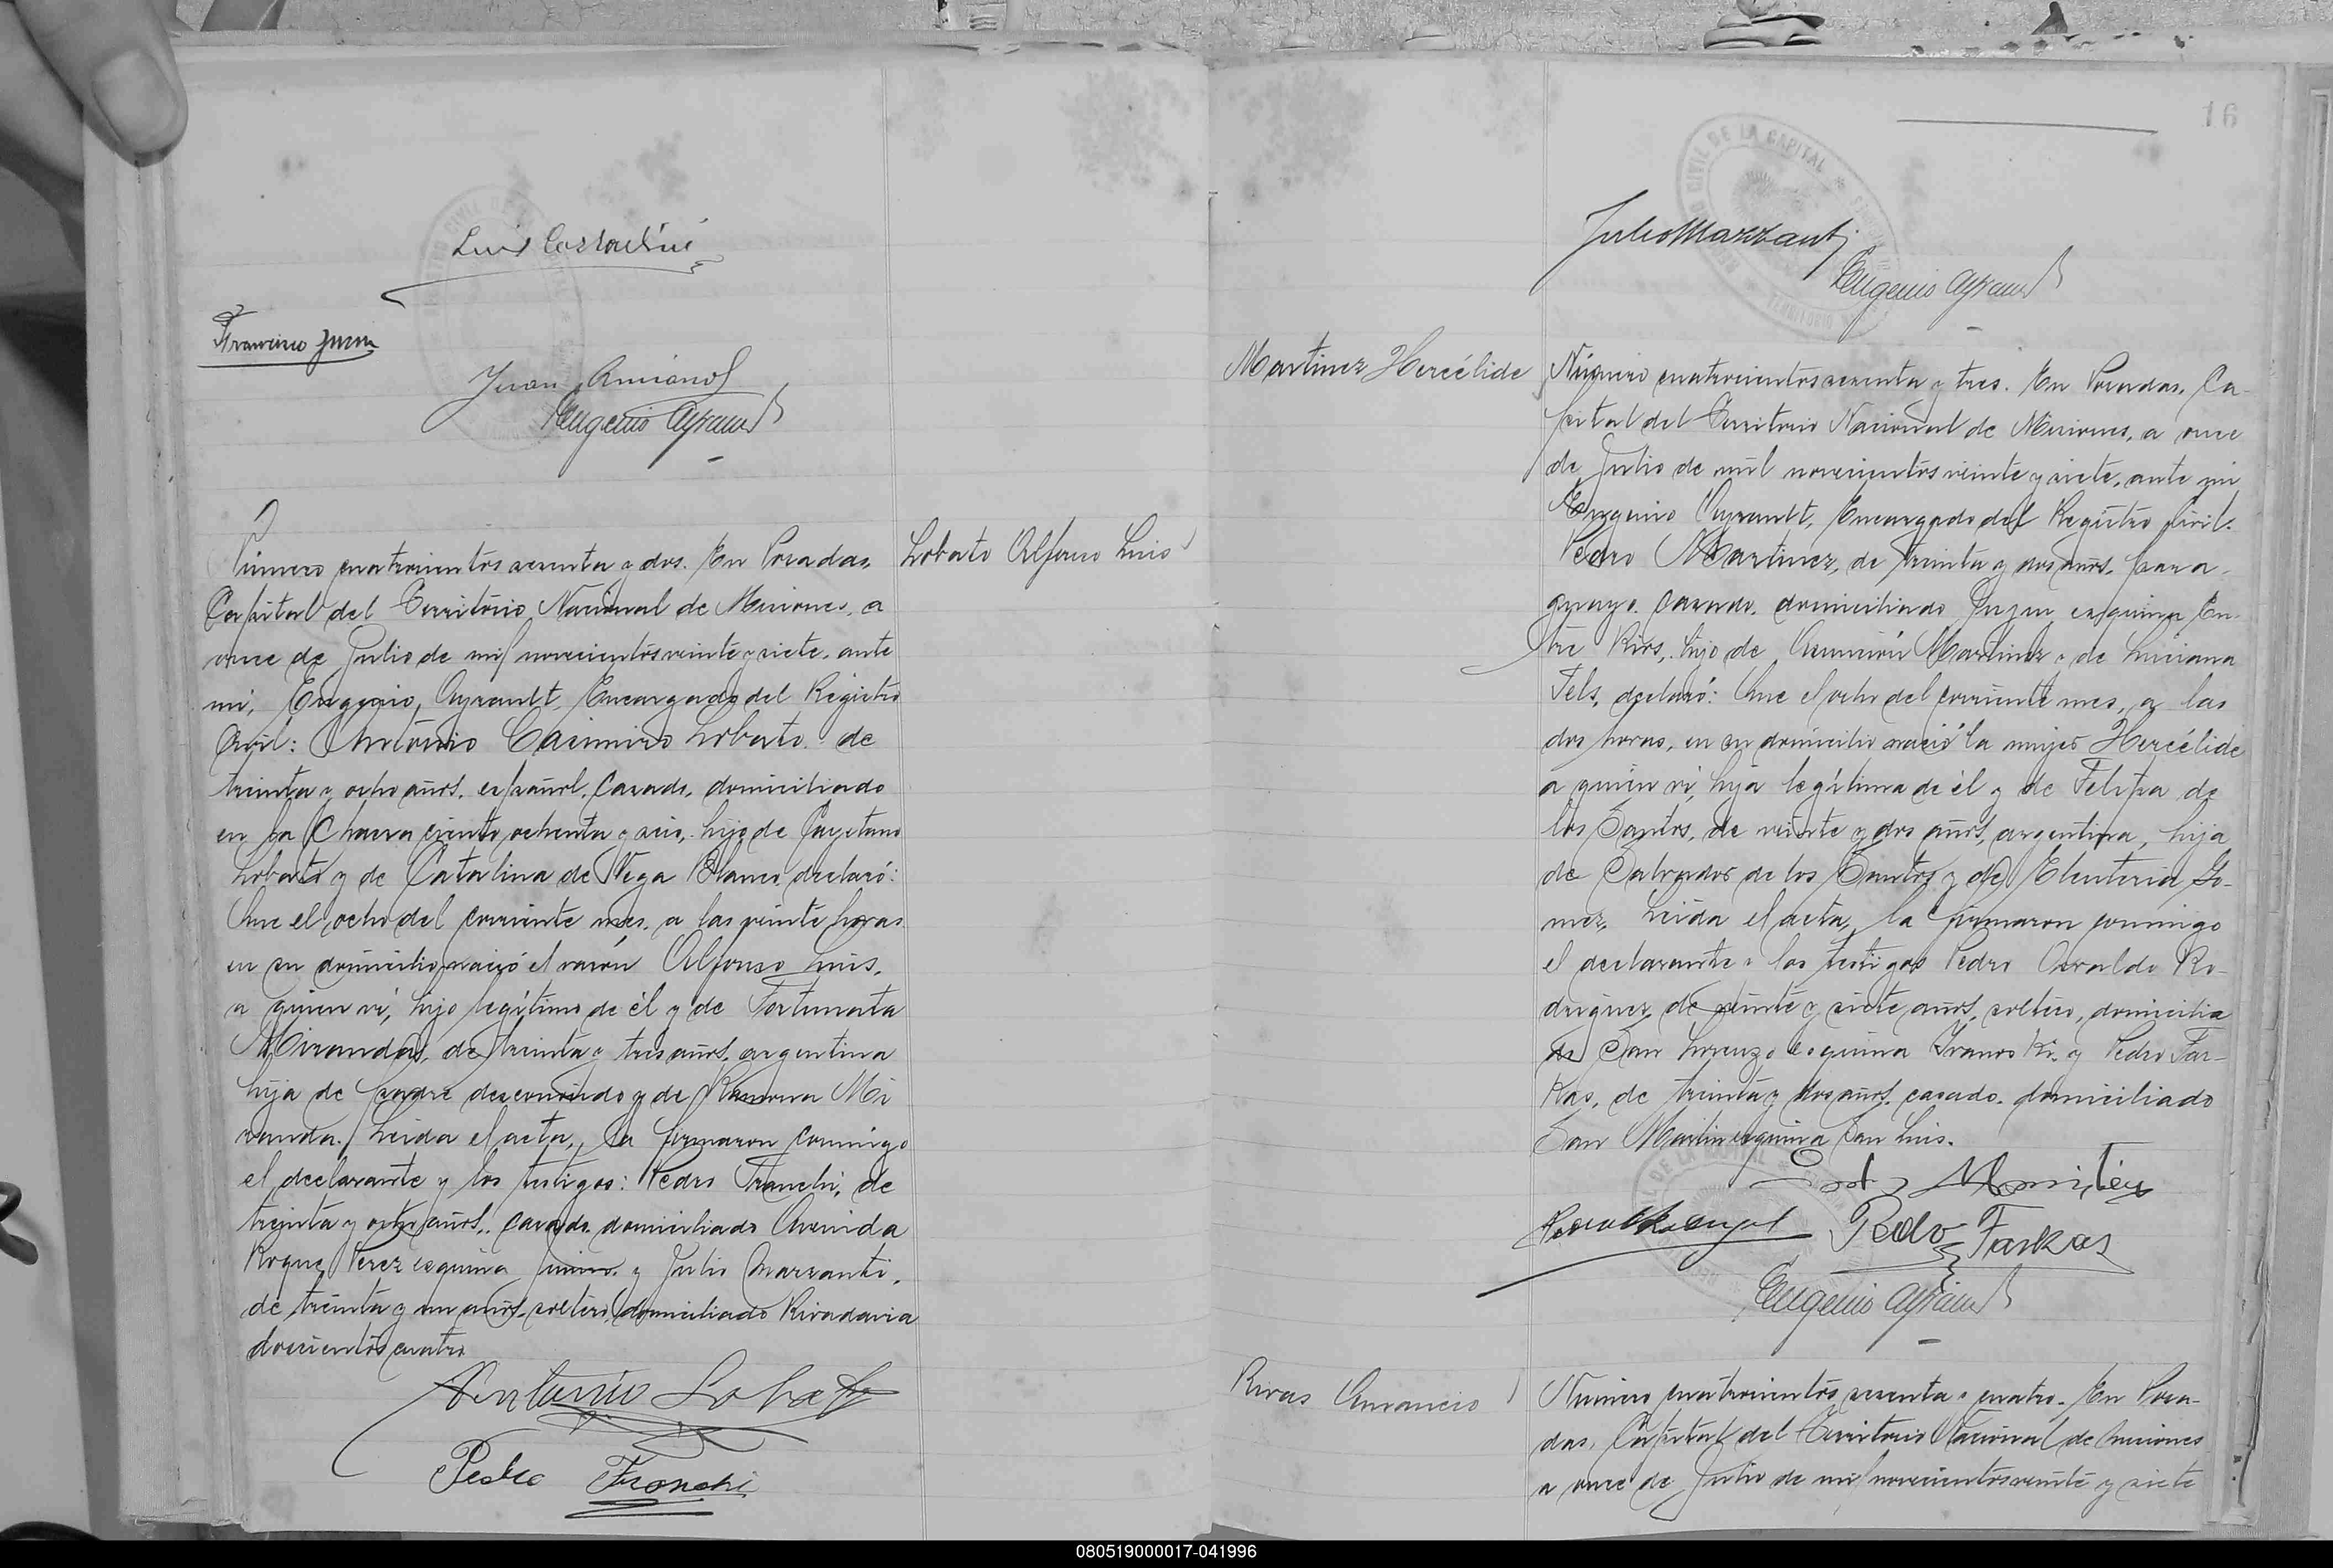 Luis Costantini
Francisco
Juan
Eugenio Ayrault
Lobato Alfonso Luis
Número cuatrocientos sesenta y dos. En Posadas,
Capital del Territorio Nacional de Misiones, a
once de Julio de mil novecientos veinte y siete, ante
mí, Eugenio Ayrault, Encargado del Registro
Civil: Antonio Casimiro Lobato de
treinta y ocho años, español, casado, domiciliado
en la Chacra ciento ochenta y seis, hijo de Cayetano
Lobato y de Catalina de Vega Blanco declaró:
Que el ocho del corriente mes, a las veinte horas
en su domicilio nació el varón Alfonso Luis,
a quien ví, hijo legítimo de él y de Fortunata
Miranda, de treinta y tres años, argentina
hija de padre desconocido y de Ramona Mi
randa. Leida el acta, la firmaron conmigo
el declarante y los testigos: Pedro Franchi, de
treinta y ocho años, casado, domiciliado Avenida
Roque Perez esquina Junin y Julio Mazzanti,
de treinta y un años, soltero, domiciliado Rivadavia
doscientos cuatro
Antonio Lobato
Pedro Franchi
16
REGISTRO CIVIL DE LA CAPITAL
Julio Mazzanti
Eugenio Ayrault
Martinez Hercélide
Número cuatrocientos sesenta y tres. En Posadas, Ca-
pital del Territorio Nacional de Misiones, a once
de Julio de mil novecientos veinte y siete, ante mi
Eugenio Ayrault, Encargado del Registro Civil:
Pedro Martinez, de treinta y dos años, para-
guayo, casado, domiciliado esquina En-
tre Rios, hijo de Asunción Martinez y de Luciana
Fels, declaró: Que el ocho del corriente mes, a las
dos horas, en su domicilio nació la mujer Hercélide
a quien ví, hija legítima de él y de Felipa de
los Santos, de veinte y dos años, argentina, hija
de Salvador de los Santos y de Eleuteria Go-
mez. Leida el acta, la firmaron conmigo
el declarante y los testigos Pedro Osvaldo Ro-
driguez, de veinte y siete años, soltero, domicilia
do San Lorenzo esquina y Pedro Far-
kas, de treinta y dos años, casado, domiciliado
San Martin esquina San Luis.
Pedro Farkas
Eugenio Ayrault
Rivas Amancio
Número cuatrocientos sesenta y cuatro. En Posa-
das, Capital del Territorio Nacional de Misiones
a once de Julio de mil novecientos veinte y siete
080519000017-041996